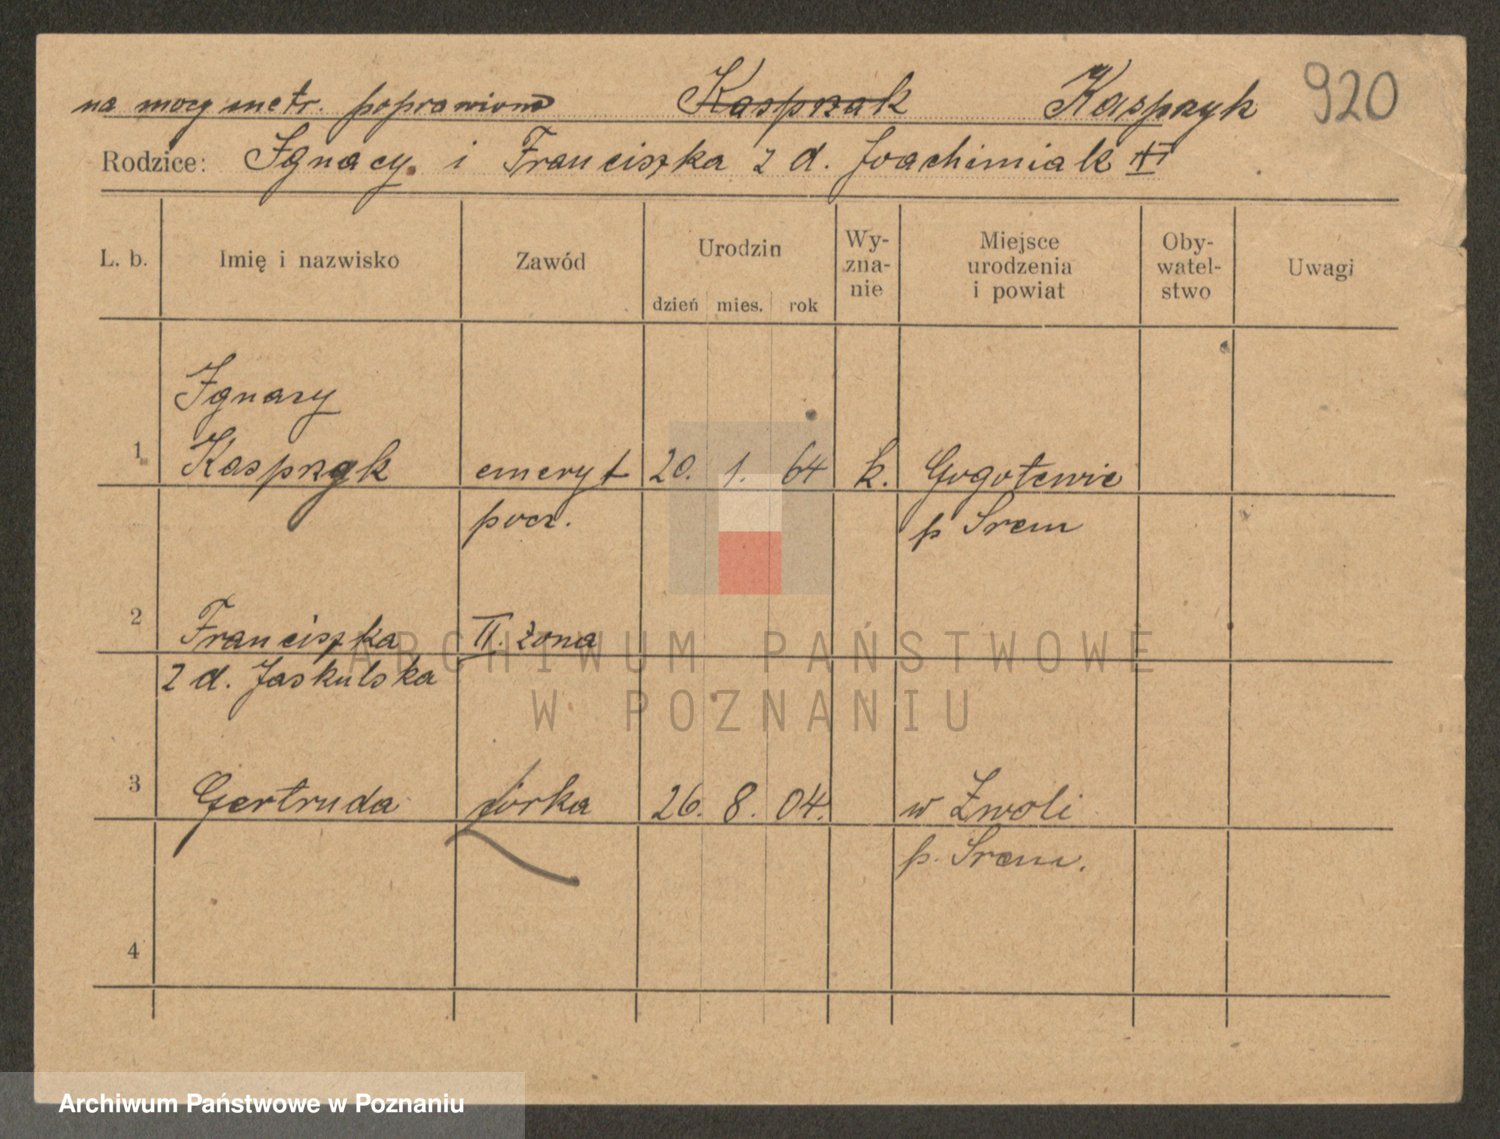 920
na mocy metr. poprawiono Kasprzak Kasprzyk
Rodzice: Ignacy i Franciszka z d. Joachimiak
L. b. Imię i nazwisko Zawód Urodzin dzień mies. rok Wy-zna-nie Miejsce urodzenia i powiat Oby-watel-stwo Uwagi
Ignacy
1 Kasprzyk emeryt 20. 1. 64 k. Gogolewie
pocz. p Śrem
2 Franciszka II. żona
z d. Jaskulska
3 Gertruda córka 26. 8. 04. w Zwoli
p. Śrem.
4
ARCHIWUM PAŃSTWOWE
W POZNANIU
Archiwum Państwowe w Poznaniu